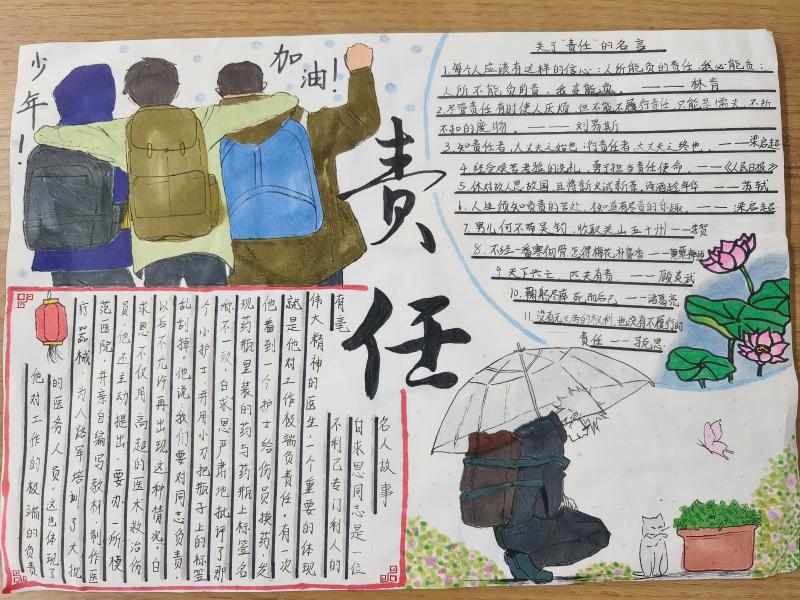 少年!
加油!
责任
关于“责任”的名言
1.每个人应该有这样的信心:人所能负的责任,我必能负;
人所不能负的责,我亦能负。———林肯
2.尽管责任有时使人厌烦,但不能不履行责任,只能是懦夫,不折
不扣的废物。———刘易斯
3.知责任者,大丈夫之始也;行责任者,大丈夫之终也。——梁启超
4.经受艰苦考验的洗礼,勇于担当责任使命。——《人民日报》
5.休对故人思故国,且将新火试新茶,诗酒趁年华——苏轼
6.人生须知负责的苦处,才知道有尽责的乐趣。——梁启超
7.男儿何不带吴钩,收取关山五十州——李贺
8.不经一番寒彻骨,怎得梅花扑鼻香——黄蘖禅师
9.天下兴亡,匹夫有责——顾炎武
10.鞠躬尽瘁,死而后已——诸葛亮
11.没有无义务的权利,也没有不履行的
责任——马克思
名人故事
白求恩同志是一位
不利己专门利人的
有毫
伟大精神的医生,一个重要的体现
就是他对工作极端负责任,有一次
他看到一个护士给伤员换药,发
现药瓶里装的药与药瓶上标签名
称不一致,白求恩严肃地批评了那
个小护士,并用小刀把瓶子上的标签
乱刮掉,他说:我们要对同志负责,
以后不允许再出现这种情况,白
求恩不仅用高超的医术救治伤
员,他还主动提出要办一所模
范医院,并亲自编写教材,制作医
疗器械,为八路军培训了大批
的医务人员,这也体现了
他对工作的极端的负责